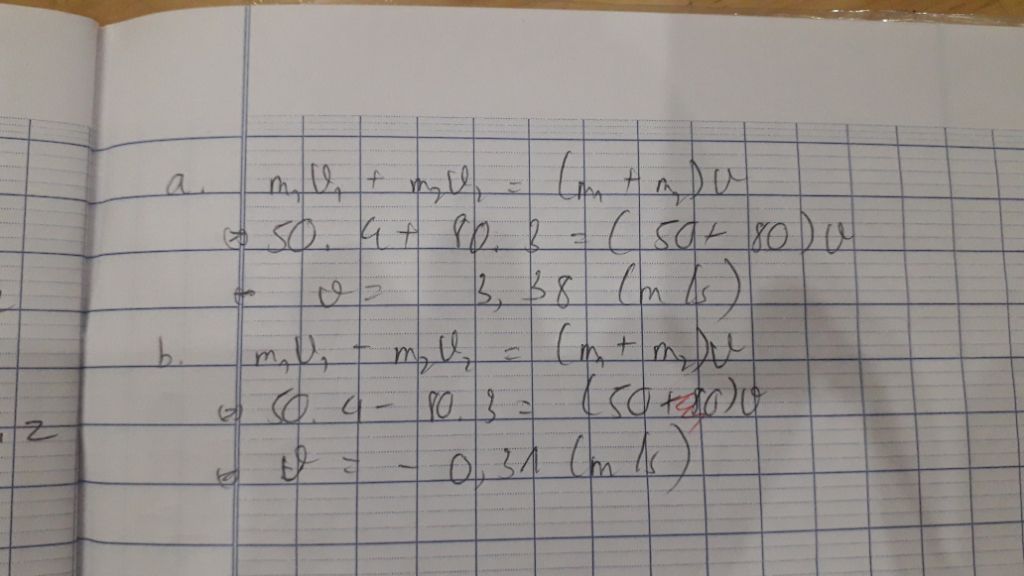 a. m₁v₁ + m₂v₂ = (m₁ + m₂)v
⇔ 50. 4 + 80. 3 = ( 50 + 80) v
⇔ v = 3,38 (m/s)
b. m₁v₁ - m₂v₂ = (m₁ + m₂)v
⇔ 50. 4 - 80. 3 = (50 + 80)v
2
⇔ v = - 0,31 (m/s)